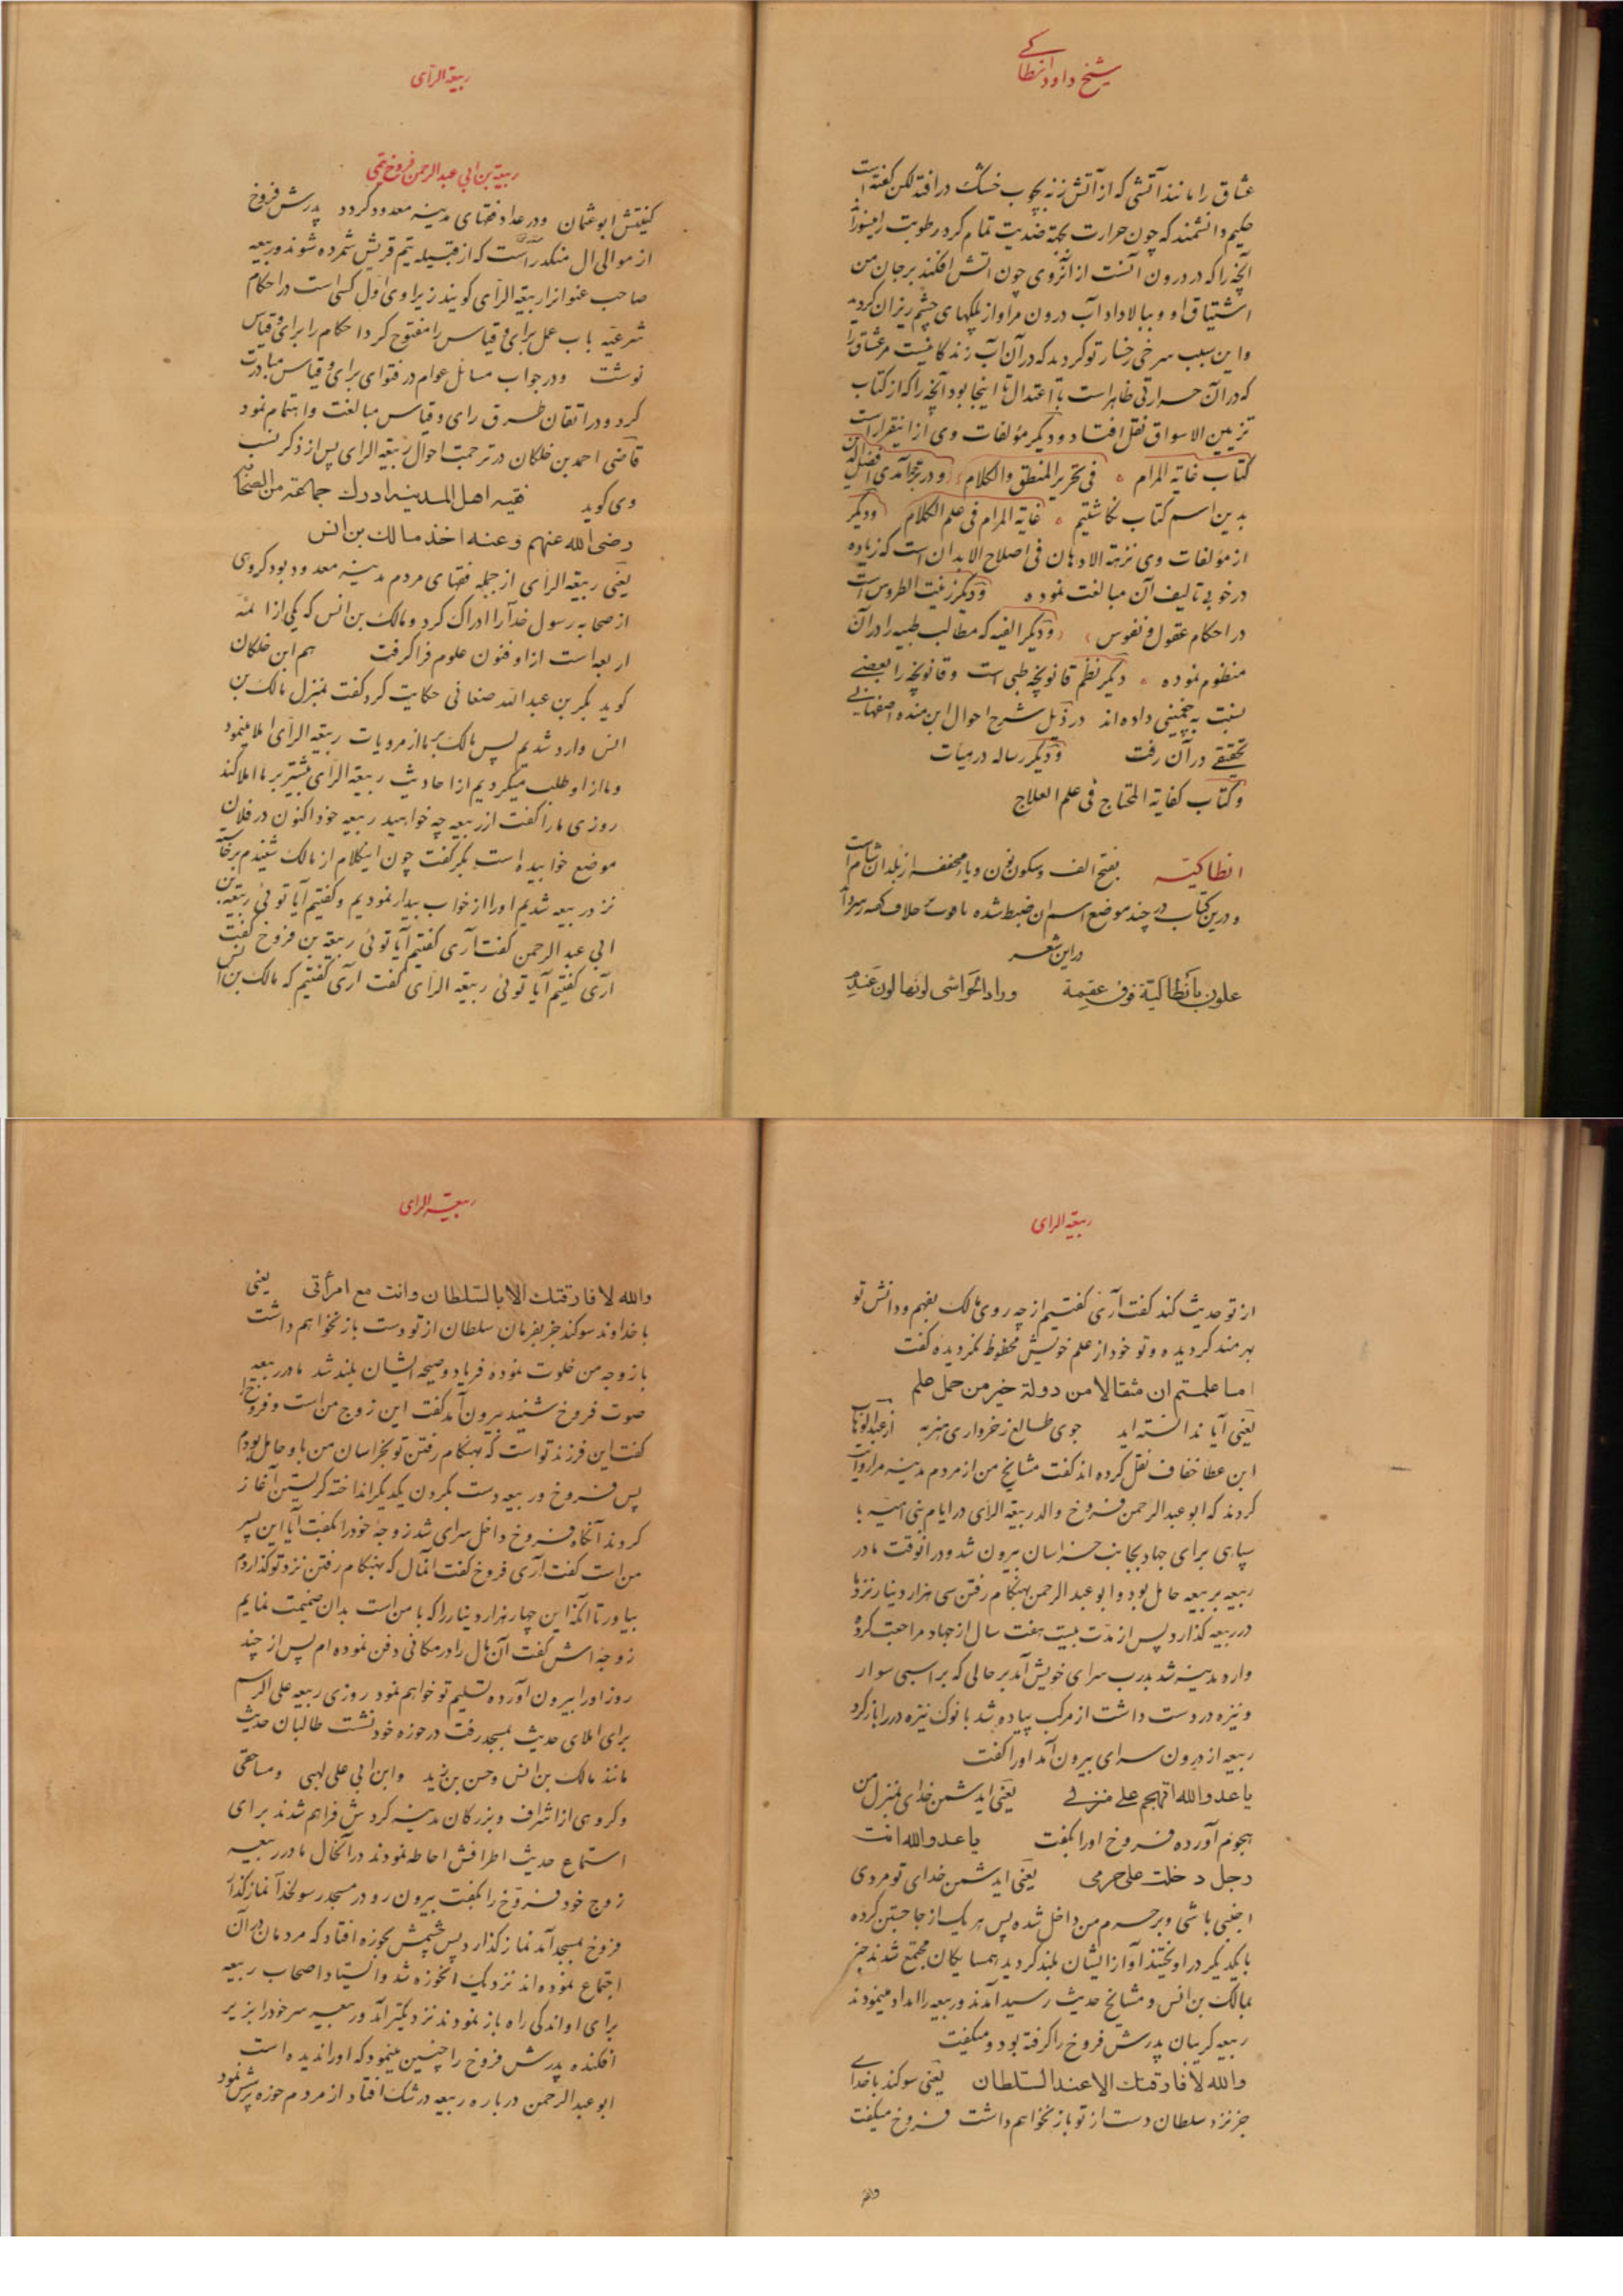 شیخ داود انطاکی
عشاق را مانند آتشی که از آتش زنه بچوب خشک در افتد لکن گفته است
حکیم دانشمند که چون حرارت بحکمة ضدیت تمام کرد رطوبت را بسوزاند
آنچه را که در درون آنست از آنروی چون آتش افکند بر جان من
اشتیاق او و ببالا داد آب درون مرا و از پلکهای چشم ریزان گردید
و این سبب سرخی رخسار تو گردید که در آن آب زندگانیست مر عشاق را
که در آن حرارتی ظاهر است با اعتدال تا اینجا بود آنچه را که از کتاب
تزیین الاسواق نقل افتاد و دیگر مؤلفات وی از اینقرار است
کتاب غایة المرام فی تحریر المنطق والکلام و در ترجمه آمدی افضل الدین
بدین اسم کتاب نگاشتیم غایة المرام فی علم الکلام و دیگر
از مؤلفات وی نزهة الاذهان فی اصلاح الابدان است که زیاده
در خوبی تالیف آن مبالغت نموده و دیگر زینت الطروس است
در احکام عقول و نفوس و دیگر الفیه که مطالب طبیه را در آن
منظوم نموده دیگر نظم قانونچه طبی است و قانونچه را بعضی
نسبت به چغمینی داده‌اند در ذیل شرح احوال ابن منده اصفهانی
تحقیقی در آن رفت و دیگر رساله در هیات
و کتاب کفایة المحتاج فی علم العلاج
انطاکیّه بفتح الف و سکون نون و یاء مخففه از بلدان شام است
و درین کتاب در چند موضع اسم آن ضبط شده
در این شعر
علون بأنطاکیّة فوق عقمة وراد الحواشی لونها لون عندم
ربیعة الرّأی
ربیعة بن ابی عبد الرحمن فروخ تیمی
کنیتش ابو عثمان و در عداد فقهای مدینه معدود گردد پدرش فروخ
از موالی ال منکدر است که از قبیله تیم قریش شمرده شوند و ربیعه
صاحب عنوانرا ربیعة الرأی گویند زیرا وی اول کسی است در احکام
شرعیّه باب عمل برای و قیاس را مفتوح کرد احکام را برای و قیاس
نوشت و در جواب مسائل عوام در فتوای برای و قیاس مبادرت
کرد و در اتقان طرق رای و قیاس مبالغت و اهتمام نمود
قاضی احمد بن خلکان در ترجمت احوال ربیعة الرای پس از ذکر نسب
وی گوید فقیه اهل المدینه ادرك جماعة من الصحابة
رضی الله عنهم و عنه اخذ مالك بن انس
یعنی ربیعة الرأی از جمله فقهای مردم مدینه معدود بود گروهی
از صحابه رسول خدا را ادراک کرد و مالک بن انس که یکی از ائمّه
اربعه است از او فنون علوم فرا گرفت هم ابن خلکان
گوید بکر بن عبد الله صنعانی حکایت کرد گفت بمنزل مالک بن
انس وارد شدیم پس مالک بر ما از مرویات ربیعة الرأی املا مینمود
و ما از او طلب میکردیم از احادیث ربیعة الرأی بیشتر بر ما املا کند
روزی ما را گفت از ربیعه چه خواهید ربیعه خود اکنون در فلان
موضع خوابیده است بکر گفت چون اینکلام از مالک شنیدم برخاسته
نزد ربیعه شدیم او را از خواب بیدار نمودیم و گفتیم آیا توئی ربیعة بن
ابی عبد الرحمن گفت آری گفتیم آیا توئی ربیعة بن فروخ گفت
آری گفتیم آیا توئی ربیعة الرأی گفت آری گفتیم که مالک بن انس
ربیعة الرای
از تو حدیث کند گفت آری گفتیم از چه روی مالک بفهم و دانش تو
بهرمند گردیده و تو خود از علم خویش محظوظ نگردیده گفت
اما علمتم ان مثقالا من دولة خیر من حمل علم
یعنی آیا ندانسته‌اید جوی طالع ز خرواری هنر به از عبد الوهاب
ابن عطا خفاف نقل کرده‌اند گفت مشایخ من از مردم مدینه مرا روایت
کردند که ابو عبد الرحمن فروخ والد ربیعة الرأی در ایام بنی امیّه با
سپاهی برای جهاد بجانب خراسان بیرون شد و در آنوقت مادر
ربیعه بر ربیعه حامل بود و ابو عبد الرحمن بهنگام رفتن سی هزار دینار نزد مادر
ربیعه گذارد پس از مدّت بیست هفت سال از جهاد مراجعت کرد
وارد مدینه شد بدرب سرای خویش آمد بر حالی که بر اسبی سوار
و نیزه در دست داشت از مرکب پیاده شد با نوک نیزه در را باز کرد
ربیعه از درون سرای بیرون آمد او را گفت
یا عدو الله اتهجم علی منزلی یعنی ایدشمن خدای بمنزل من
هجوم آورده فروخ او را بگفت یا عدو الله انت
رجل دخلت علی حرمی یعنی ایدشمن خدای تو مردی
اجنبی باشی و بر حرم من داخل شده پس هر یک از جا جستن کرده
با یکدیگر در اویختند آواز ایشان بلند گردید همسایگان مجتمع شدند خبر
بمالک بن انس و مشایخ حدیث رسید آمدند و ربیعه را امداد مینمودند
ربیعه گریبان پدرش فروخ را گرفته بود و میگفت
والله لا فارقتك الا عند السلطان یعنی سوگند با خدای
جز نزد سلطان دست از تو باز نخواهم داشت فروخ میگفت
والله
ربیعة الرای
والله لا فارقتك الا بالسّلطان وانت مع امرأتی یعنی
با خداوند سوگند جز بفرمان سلطان از تو دست باز نخواهم داشت
با زوجه من خلوت نموده فریاد و صیحه ایشان بلند شد مادر ربیعه
صوت فروخ شنید بیرون آمد گفت این زوج من است و فروخ را
گفت این فرزند تو است که بهنگام رفتن تو بخراسان من باو حامل بودم
پس فروخ و ربیعه دست بگردن یکدیگر انداخته گریستن آغاز
کردند آنگاه فروخ داخل سرای شد زوجه خود را بگفت آیا این پسر
من است گفت آری فروخ گفت انمال که بهنگام رفتن نزد تو گذاردم
بیاور تا آنکه این چهار هزار دینار را که با من است بدان ضمیمت نمایم
زوجه‌اش گفت آن مال را در مکانی دفن نموده‌ام پس از چند
روز او را بیرون آورده تسلیم تو خواهم نمود روزی ربیعه علی الرسم
برای املای حدیث بمسجد رفت در حوزه خود نشست طالبان حدیث
مانند مالک بن انس و حسن بن زید و ابن ابی علی لهبی و مساحقی
و گروهی از اشراف و بزرگان مدینه گردش فراهم شدند برای
استماع حدیث اطرافش احاطه نمودند در آنحال مادر ربیعه
زوج خود فروّخ را بگفت بیرون رو در مسجد رسولخدا نماز گذار
فروخ بمسجد آمد نماز گذارد پس چشمش بحوزه افتاد که مردمان در آن
اجتماع نموده‌اند نزدیک انحوزه شد و ایستاد اصحاب ربیعه
برای او اندکی راه باز نمودند نزدیکتر آمد و ربیعه سر خود را بزیر
افکنده پدرش فروخ را چنین مینمود که او را ندیده است
ابو عبد الرحمن درباره ربیعه در شک افتاد از مردم حوزه پرسش نمود